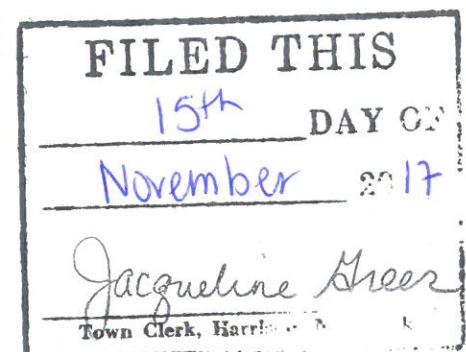 FILED THIS
15th DAY OF
November 2017
Jacqueline Greer
Town Clerk,